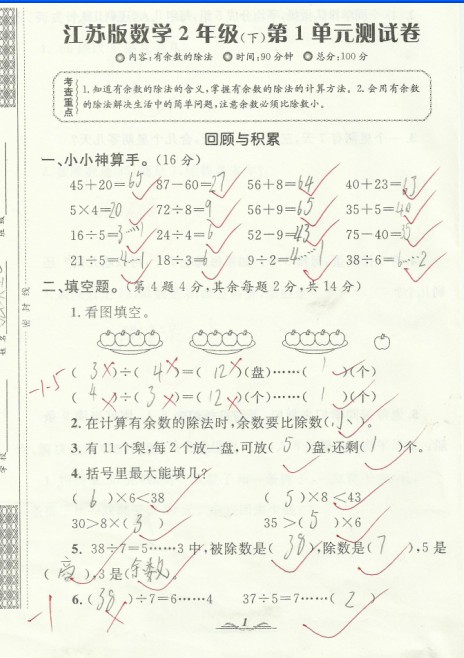 江苏版数学2年级(下)第1单元测试卷
◎内容:有余数的除法 ◎时间:90分钟 ◎总分:100分
考查重点
1.知道有余数的除法的含义,掌握有余数的除法的计算方法。2.会用有余数
的除法解决生活中的简单问题,注意余数必须比除数小。
回顾与积累
一、小小神算手。(16分)
45+20=65 87-60=27 56+8=64 40+23=63
5×4=20 72÷8=9 56+9=65 35+5=40
16÷5=3……1 24÷4=6 52-9=43 75-40=35
21÷5=4…1 18÷3=6 9÷2=4……1 38÷6=6……2
二、填空题。(第4题4分,其余每题2分,共14分)
1.看图填空。
-1.5
( 3 )÷( 4 )=( 12 )(盘)……( 1 )(个)
( 4 )÷( 3 )=( 12 )(个)……( 1 )(个)
2.在计算有余数的除法时,余数要比除数(小)。
3.有11个梨,每2个放一盘,可放( 5 )盘,还剩( 1 )个。
4.括号里最大能填几?
( 6 )×6<38 ( 5 )×8<43
30>8×( 3 ) 35>( 5 )×6
5. 38÷7=5……3中,被除数是( 38 ),除数是( 7 ),5是
( 商 ),3是(余数)。
6.( 38 )÷7=6……4 37÷5=7……( 2 )
-1
1
班级
姓名
学校
密封线